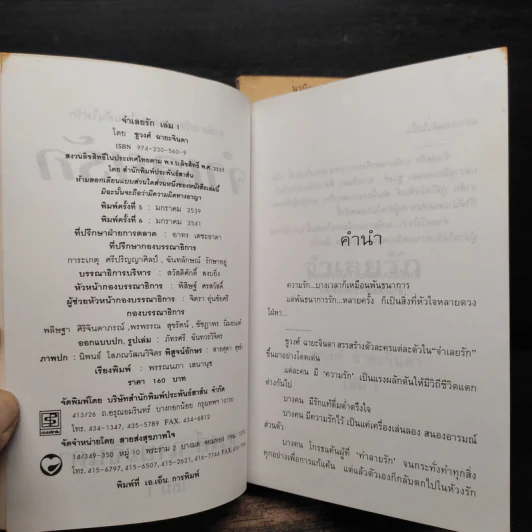 จำเลยรัก เล่ม 1
โดย ชูวงศ์ ฉายะจินดา
ISBN 974-230-560-9
สงวนลิขสิทธิ์ในประเทศไทยตาม พ.ร.บ.ลิขสิทธิ์ พ.ศ. 2537
โดย สำนักพิมพ์ประพันธ์สาส์น
ห้ามลอกเลียนแบบส่วนใดส่วนหนึ่งของหนังสือเล่มนี้
มิฉะนั้นจะถือว่ามีความผิดทางอาญา
พิมพ์ครั้งที่ 5 : มกราคม 2539
พิมพ์ครั้งที่ 6 : มกราคม 2541
ที่ปรึกษาฝ่ายการตลาด : อาทร เตชะธาดา
ที่ปรึกษากองบรรณาธิการ
การะเกตุ ศรีปริญญาศิลป์, ฉันทลักษณ์ รักษาอยู่
บรรณาธิการบริหาร : สวัสดิศักดิ์ สงบยิ่ง
หัวหน้ากองบรรณาธิการ : พิสิษฐ์ ศรสวัสดิ์
ผู้ช่วยหัวหน้ากองบรรณาธิการ : จิตรา อุ่นชัยศรี
กองบรรณาธิการ
พลิษฐา ศิริจินดาภรณ์, พรพรรณ สุขรัตน์, ชัชฎาพร นิมยนต์
ออกแบบปก, รูปเล่ม : ภัทรศรี ฉันทวรวิจิตร
ภาพปก : นิพนธ์ โสภณวัฒนวิจิตร พิสูจน์อักษร : สายสุดา
เรียงพิมพ์ : พรรณนภา เสนานุช
ราคา 160 บาท
จัดพิมพ์โดย บริษัทสำนักพิมพ์ประพันธ์สาส์น จำกัด
413/26 ถ.อรุณอมรินทร์ บางกอกน้อย กรุงเทพฯ 10700
โทร. 435-5789, 435-5671, FAX. 434-6812
จัดจำหน่ายโดย สายส่งสุขภาพใจ
14/349-350 หมู่ 10 พระราม 2 บางมด จอมทอง
โทร. 415-6797, 415-6507, 415-2621, 416-7744 FAX.
พิมพ์ที่ เอ.เอ็น. การพิมพ์
คำนำ
ความรัก...บางเวลาก็เหมือนพันธนาการ
แต่พันธนาการรัก...หลายครั้ง ก็เป็นสิ่งที่หัวใจหลายดวง
ใฝ่หา...
ชูวงศ์ ฉายะจินดา สรรสร้างตัวละครแต่ละตัวใน "จำเลยรัก"
ขึ้นมาอย่างโดดเด่น
แต่ละคน มี 'ความรัก' เป็นแรงผลักดันให้มีวิถีชีวิตแตก
ต่างกันไป
บางคน มีรักแท้ดื่มด่ำตรึงใจ
บางคน มีความรักไว้ เป็นแค่เครื่องเล่นลอง สนองอารมณ์
ส่วนตัว
บางคน โกรธแค้นผู้ที่ 'ทำลายรัก' จนกระทั่งทำทุกสิ่ง
ทุกอย่างเพื่อการแก้แค้น แต่แล้วตัวเองก็กลับตกไปในห้วงรัก